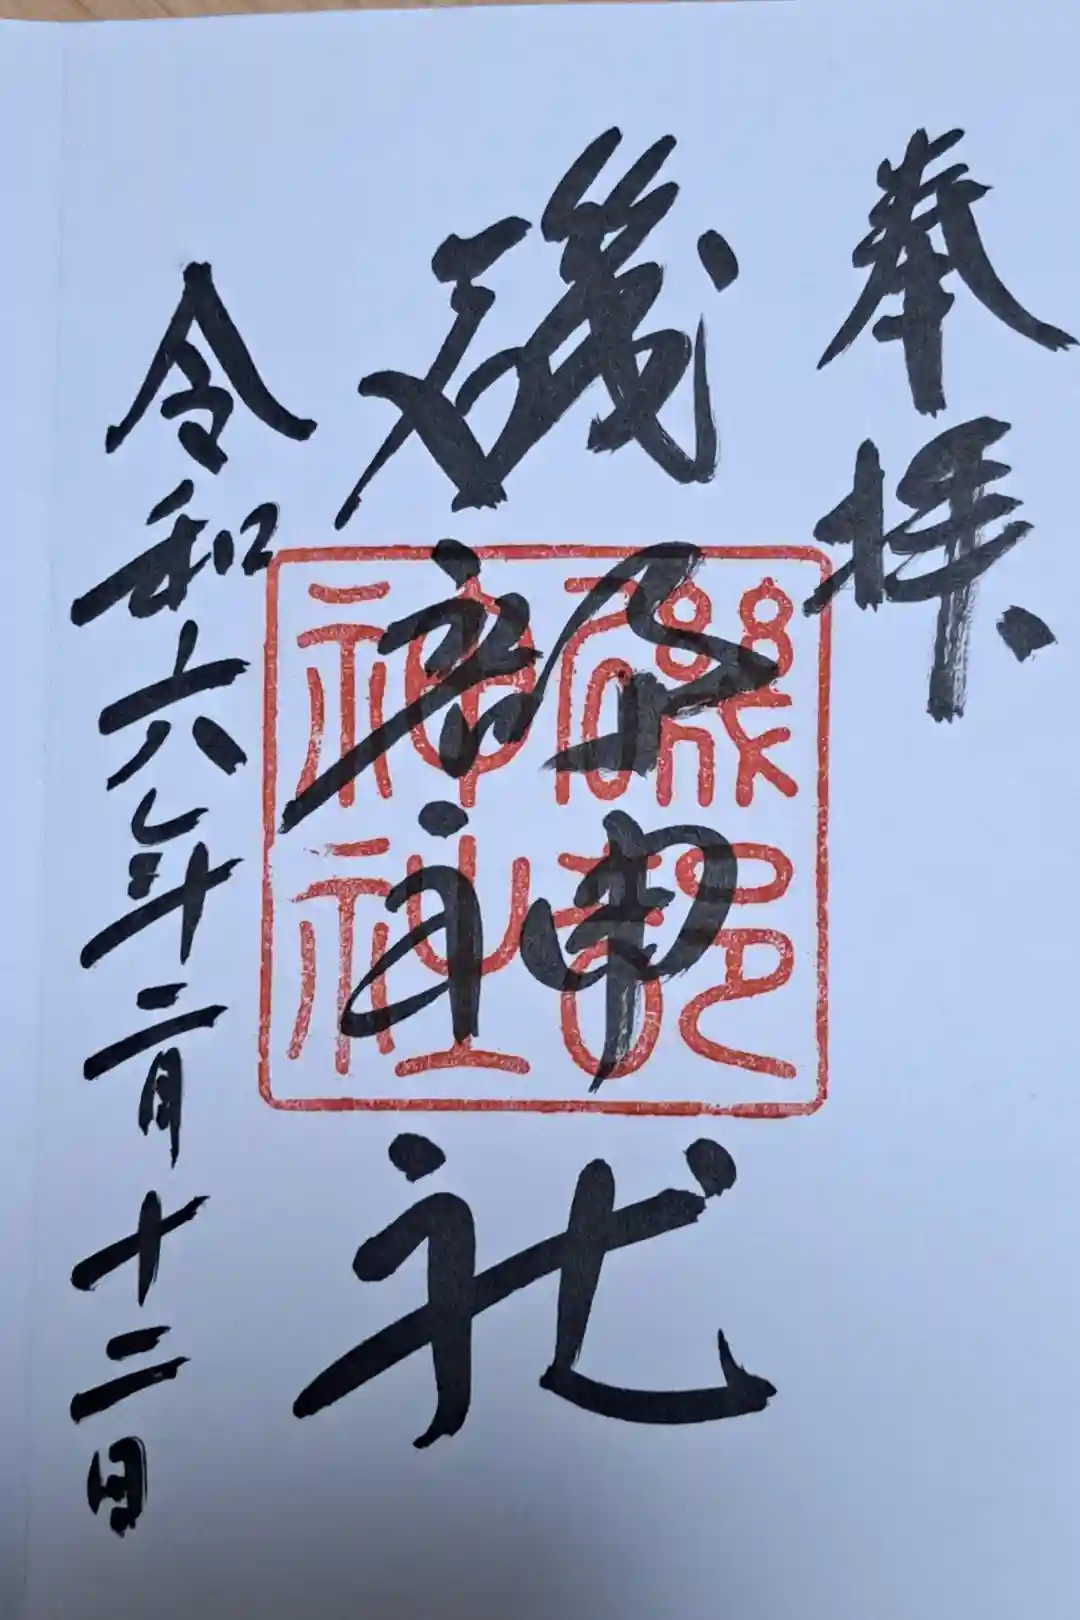 奉拝
磯部神社
令和六年二月十二日
磯部神社